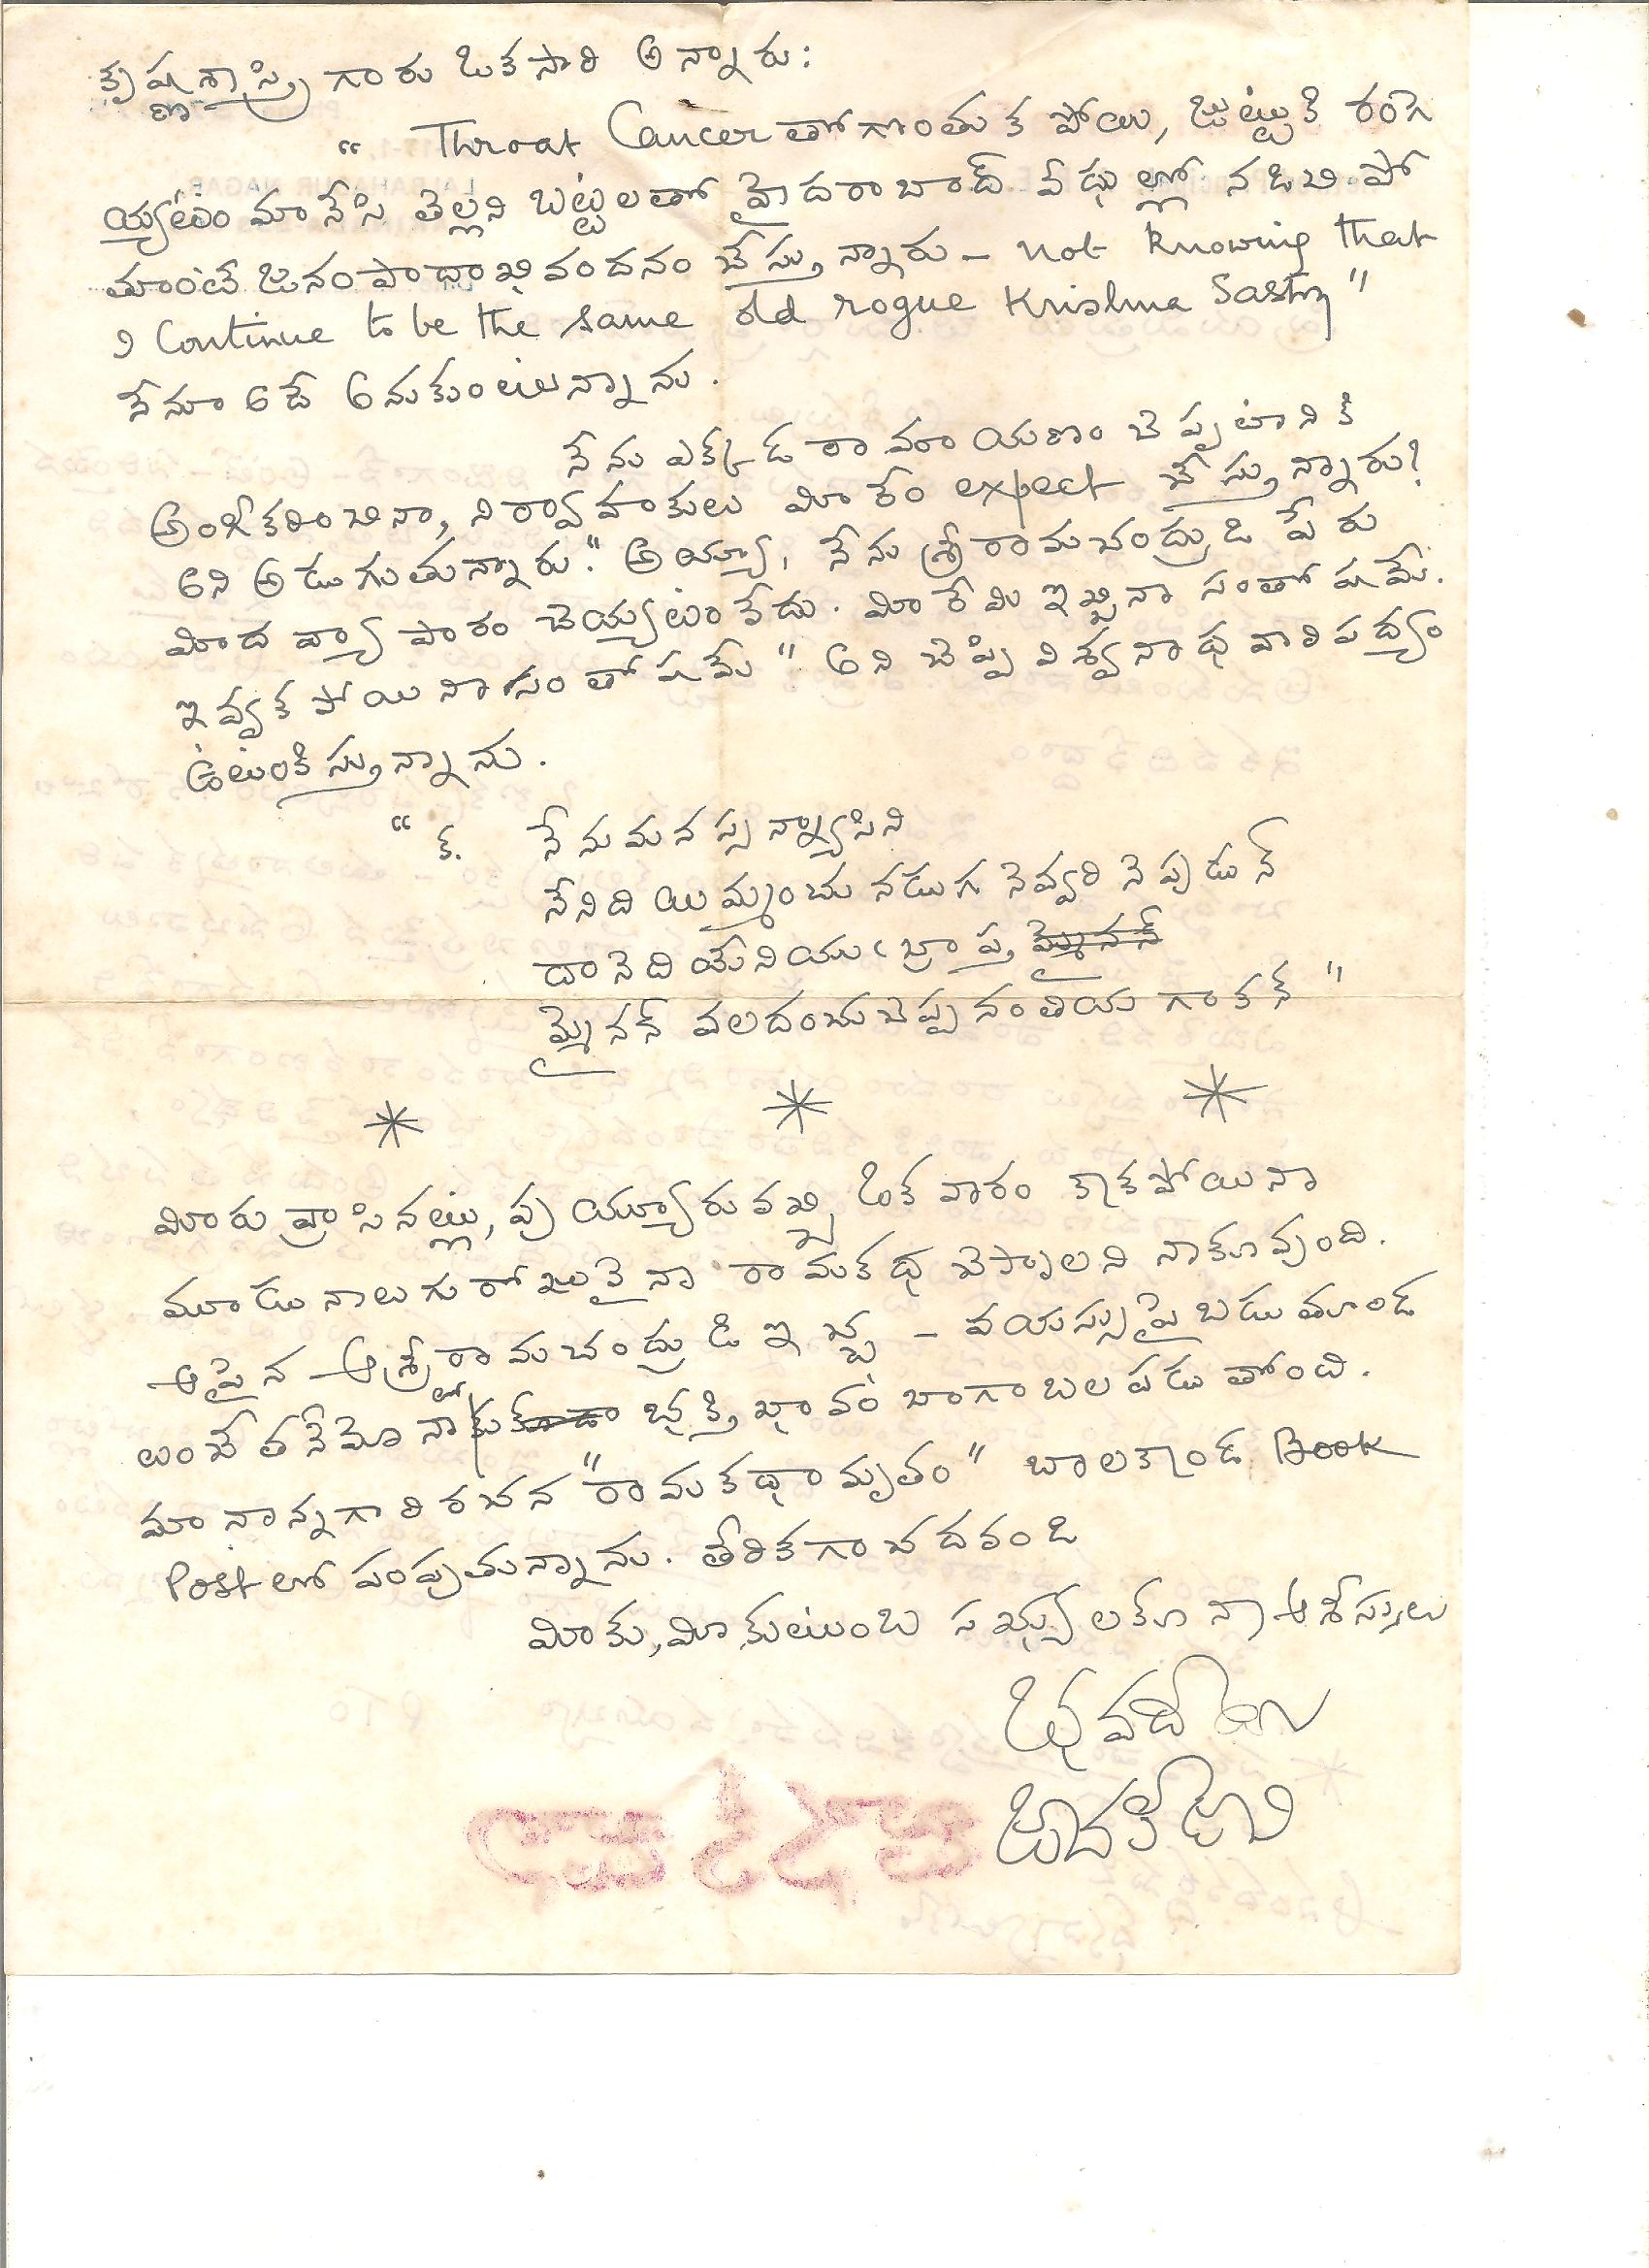 కృష్ణశాస్త్రి గారు ఒకసారి అన్నారు:
“ Throat Cancer తో గొంతుక పోయి, జుట్టుకి రంగె
య్యటం మానేసి తెల్లని బట్టలతో హైదరాబాద్ వీధుల్లో నడిచి పో
తూంటే జనం పాదాభివందనం చేస్తున్నారు - not knowing that
I Continue to be the same old rogue Krishna Sastry ”
నేనూ అదే అనుకుంటున్నాను.
నేను ఎక్కడ రామాయణం చెప్పటానికి
అంగీకరించినా, నిర్వాహకులు మీరేం expect చేస్తున్నారు?
అని అడుగుతున్నారు. “అయ్యా, నేను శ్రీరామచంద్రుడి పేరు
మీద వ్యాపారం చెయ్యటంలేదు. మీరేమి ఇచ్చినా సంతోషమే.
ఇవ్వక పోయినా సంతోషమే ” అని చెప్పి విశ్వనాథ వారి పద్యం
ఉటంకిస్తున్నాను.
“ క. నేను మనస్సన్న్యాసిని
నేనిది యిమ్మంచు నడుగ నెవ్వరి నెపుడున్
దానెది యేనియుఁ బ్రాప్త మ్మైనన్
మ్మైనన్ వలదంచుచెప్ప నంతియ గాకన్ ”
* * *
మీరు వ్రాసినట్లు, వుయ్యూరు వచ్చి ఒక వారం కాకపోయినా
మూడు నాలుగు రోజులైనా రామకథ చెప్పాలని నాకూ వుంది.
ఆపైన ఆ శ్రీరామచంద్రుడి ఇచ్ఛ - వయస్సు పై బడుతూండ
టంచేతనేమో నాలో భక్తి భావం బాగా బలపడుతోంది.
మా నాన్నగారి రచన “రామకథామృతం” బాలకాండ Book
Post లో పంపుతున్నాను. తీరికగా చదవండి
మీకు, మీ కుటుంబ సభ్యులకూ నా ఆశీస్సులు
భవదీయ